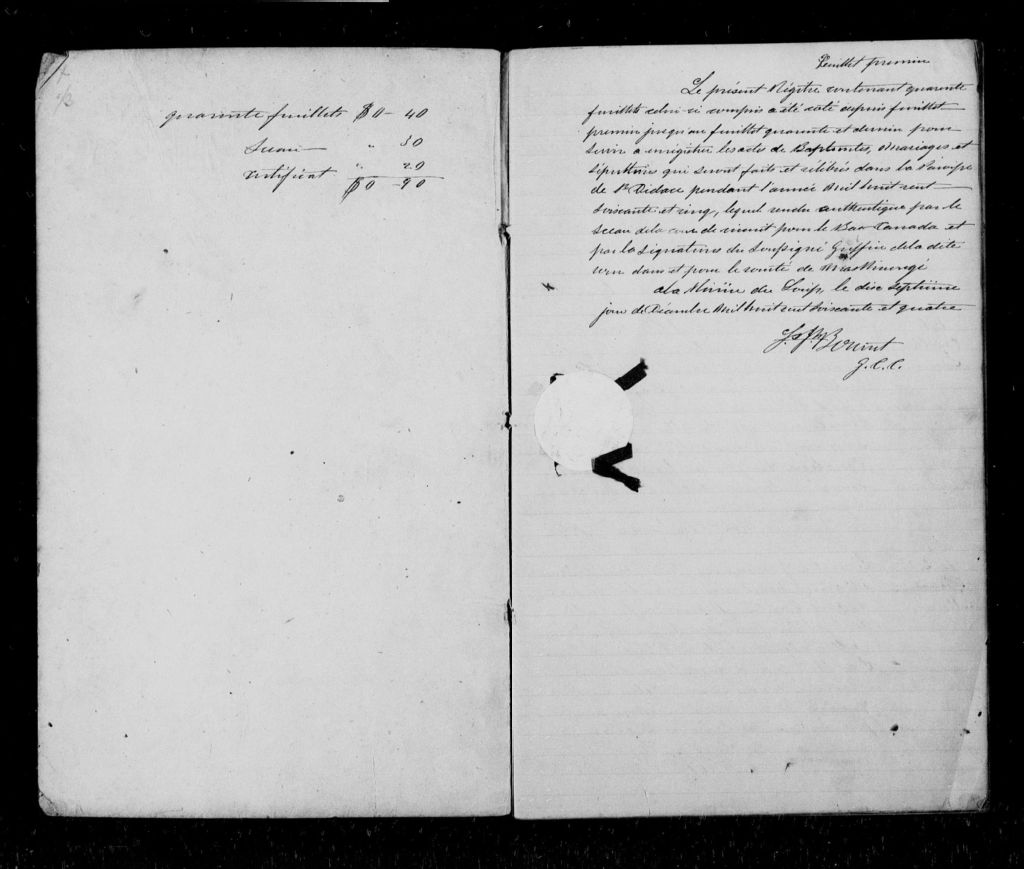 quarante feuillets $0 - 40
Sceau " 30
Certificat " 20
$0 - 90
Feuillet premier
Le présent Régitre contenant quarante
feuillets celui-ci compris a été coté depuis feuillet
premier jusqu'au feuillet quarante et dernier pour
servir a enrégitrer les actes de Baptemes, Mariages et
Sépultures qui seront faits et célébrés dans la Paroisse
de St Didace pendant l'année Mil huit cent
soixante et cinq, lequel rendu authentique par le
Sceau de la cour de circuit pour le Bas Canada et
par la Signature du Soussigné Greffier de la dite
cour dans et pour le comté de Maskinongé
a la Rivière du Loup, le dix septième
jour de Décembre Mil huit cent soixante et quatre
G. C. C.